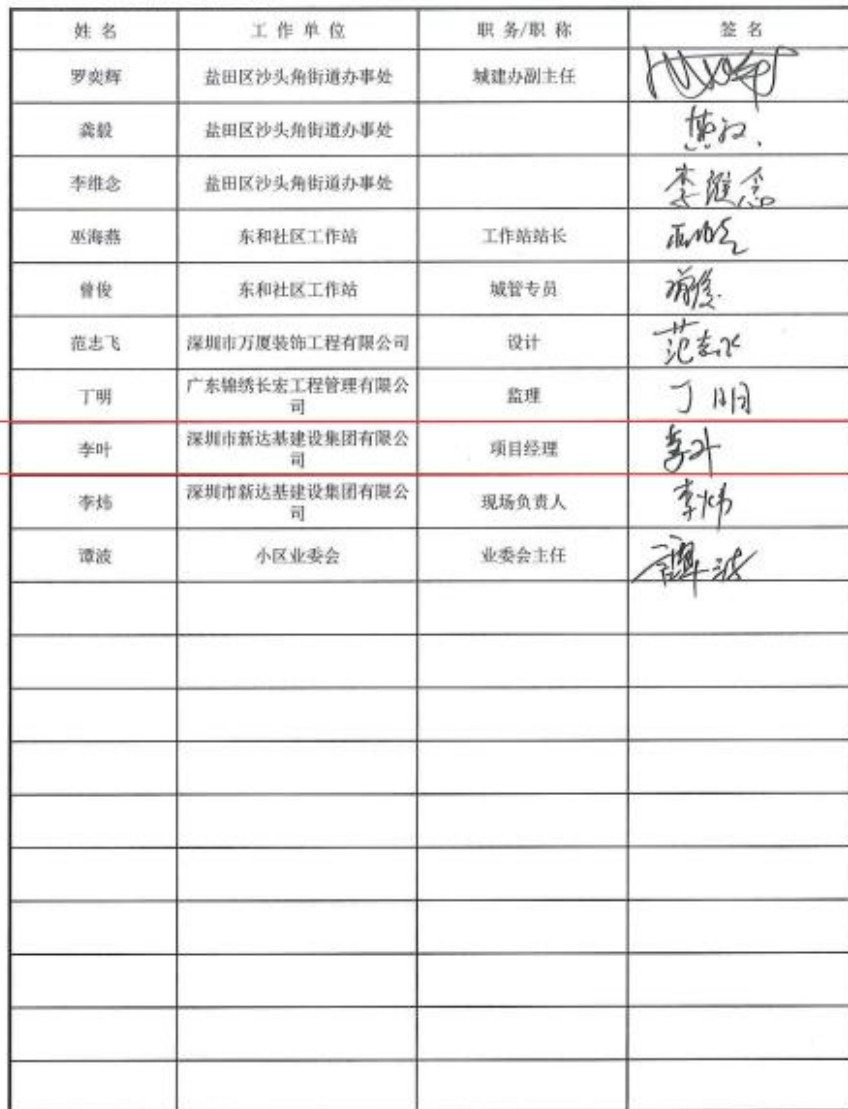 姓 名 工 作 单 位 职 务/职 称 签 名
罗奕辉 盐田区沙头角街道办事处 城建办副主任
龚毅 盐田区沙头角街道办事处
李维念 盐田区沙头角街道办事处 李维念
巫海燕 东和社区工作站 工作站站长
曾俊 东和社区工作站 城管专员 曾俊
范志飞 深圳市万厦装饰工程有限公司 设计 范志飞
丁明 广东锦绣长宏工程管理有限公
司 监理 丁明
李叶 深圳市新达基建设集团有限公
司 项目经理 李叶
李炜 深圳市新达基建设集团有限公
司 现场负责人 李炜
谭波 小区业委会 业委会主任 谭波